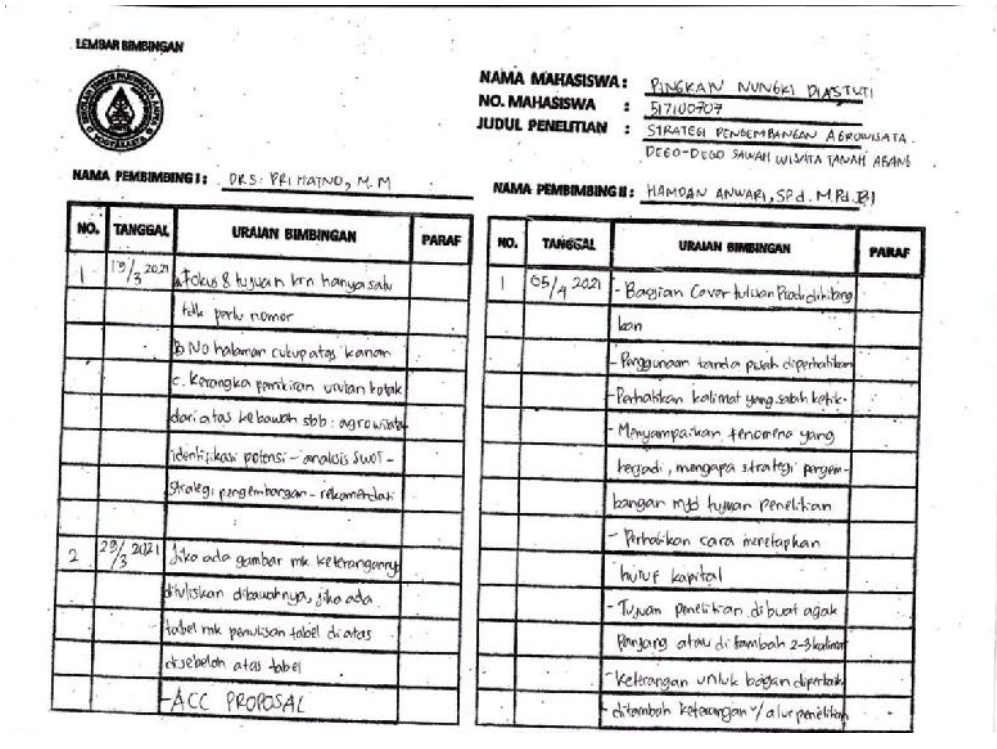 LEMBAR BIMBINGAN
NAMA MAHASISWA : PINGKAN NUNGKI DIASTUTI
NO. MAHASISWA : 517100707
JUDUL PENELITIAN : STRATEGI PENGEMBANGAN AGROWISATA
DEGO-DEGO SAWAH WISATA TANAH ABANG
NAMA PEMBIMBING I : DRS. PRIHATNO, M.M
NO. TANGGAL URAIAN BIMBINGAN PARAF
1 19/3 2021 a. Fokus & tujuan krn hanya satu
tdk perlu nomor
b No halaman cukup atas kanan
c. Kerangka pemikiran urutan kotak
dari atas kebawah sbb : agrowisata
identifikasi potensi - analisis SWOT -
Strategi pengembangan - rekomendasi
2 29/3 2021 Jika ada gambar mk keterangannya
dituliskan dibawahnya, jika ada
tabel mk penulisan tabel di atas
disebelah atas tabel
- ACC PROPOSAL
NAMA PEMBIMBING II : HAMDAN ANWARI, SPd. M.Pd.BI
NO. TANGGAL URAIAN BIMBINGAN PARAF
1 05/4 2021 - Bagian Cover tulisan Prodi dihilang
kan
- Penggunaan tanda pisah diperhatikan
- Perhatikan kalimat yang salah ketik.
- Menyampaikan fenomena yang
terjadi, mengapa strategi pengem-
bangan mjd tujuan penelitian
- Perhatikan cara menetapkan
huruf kapital
- Tujuan penelitian dibuat agak
Panjang atau di tambah 2-3 kalimat
- Keterangan untuk bagan diperbaiki
- ditambah keterangan u/ alur penelitian